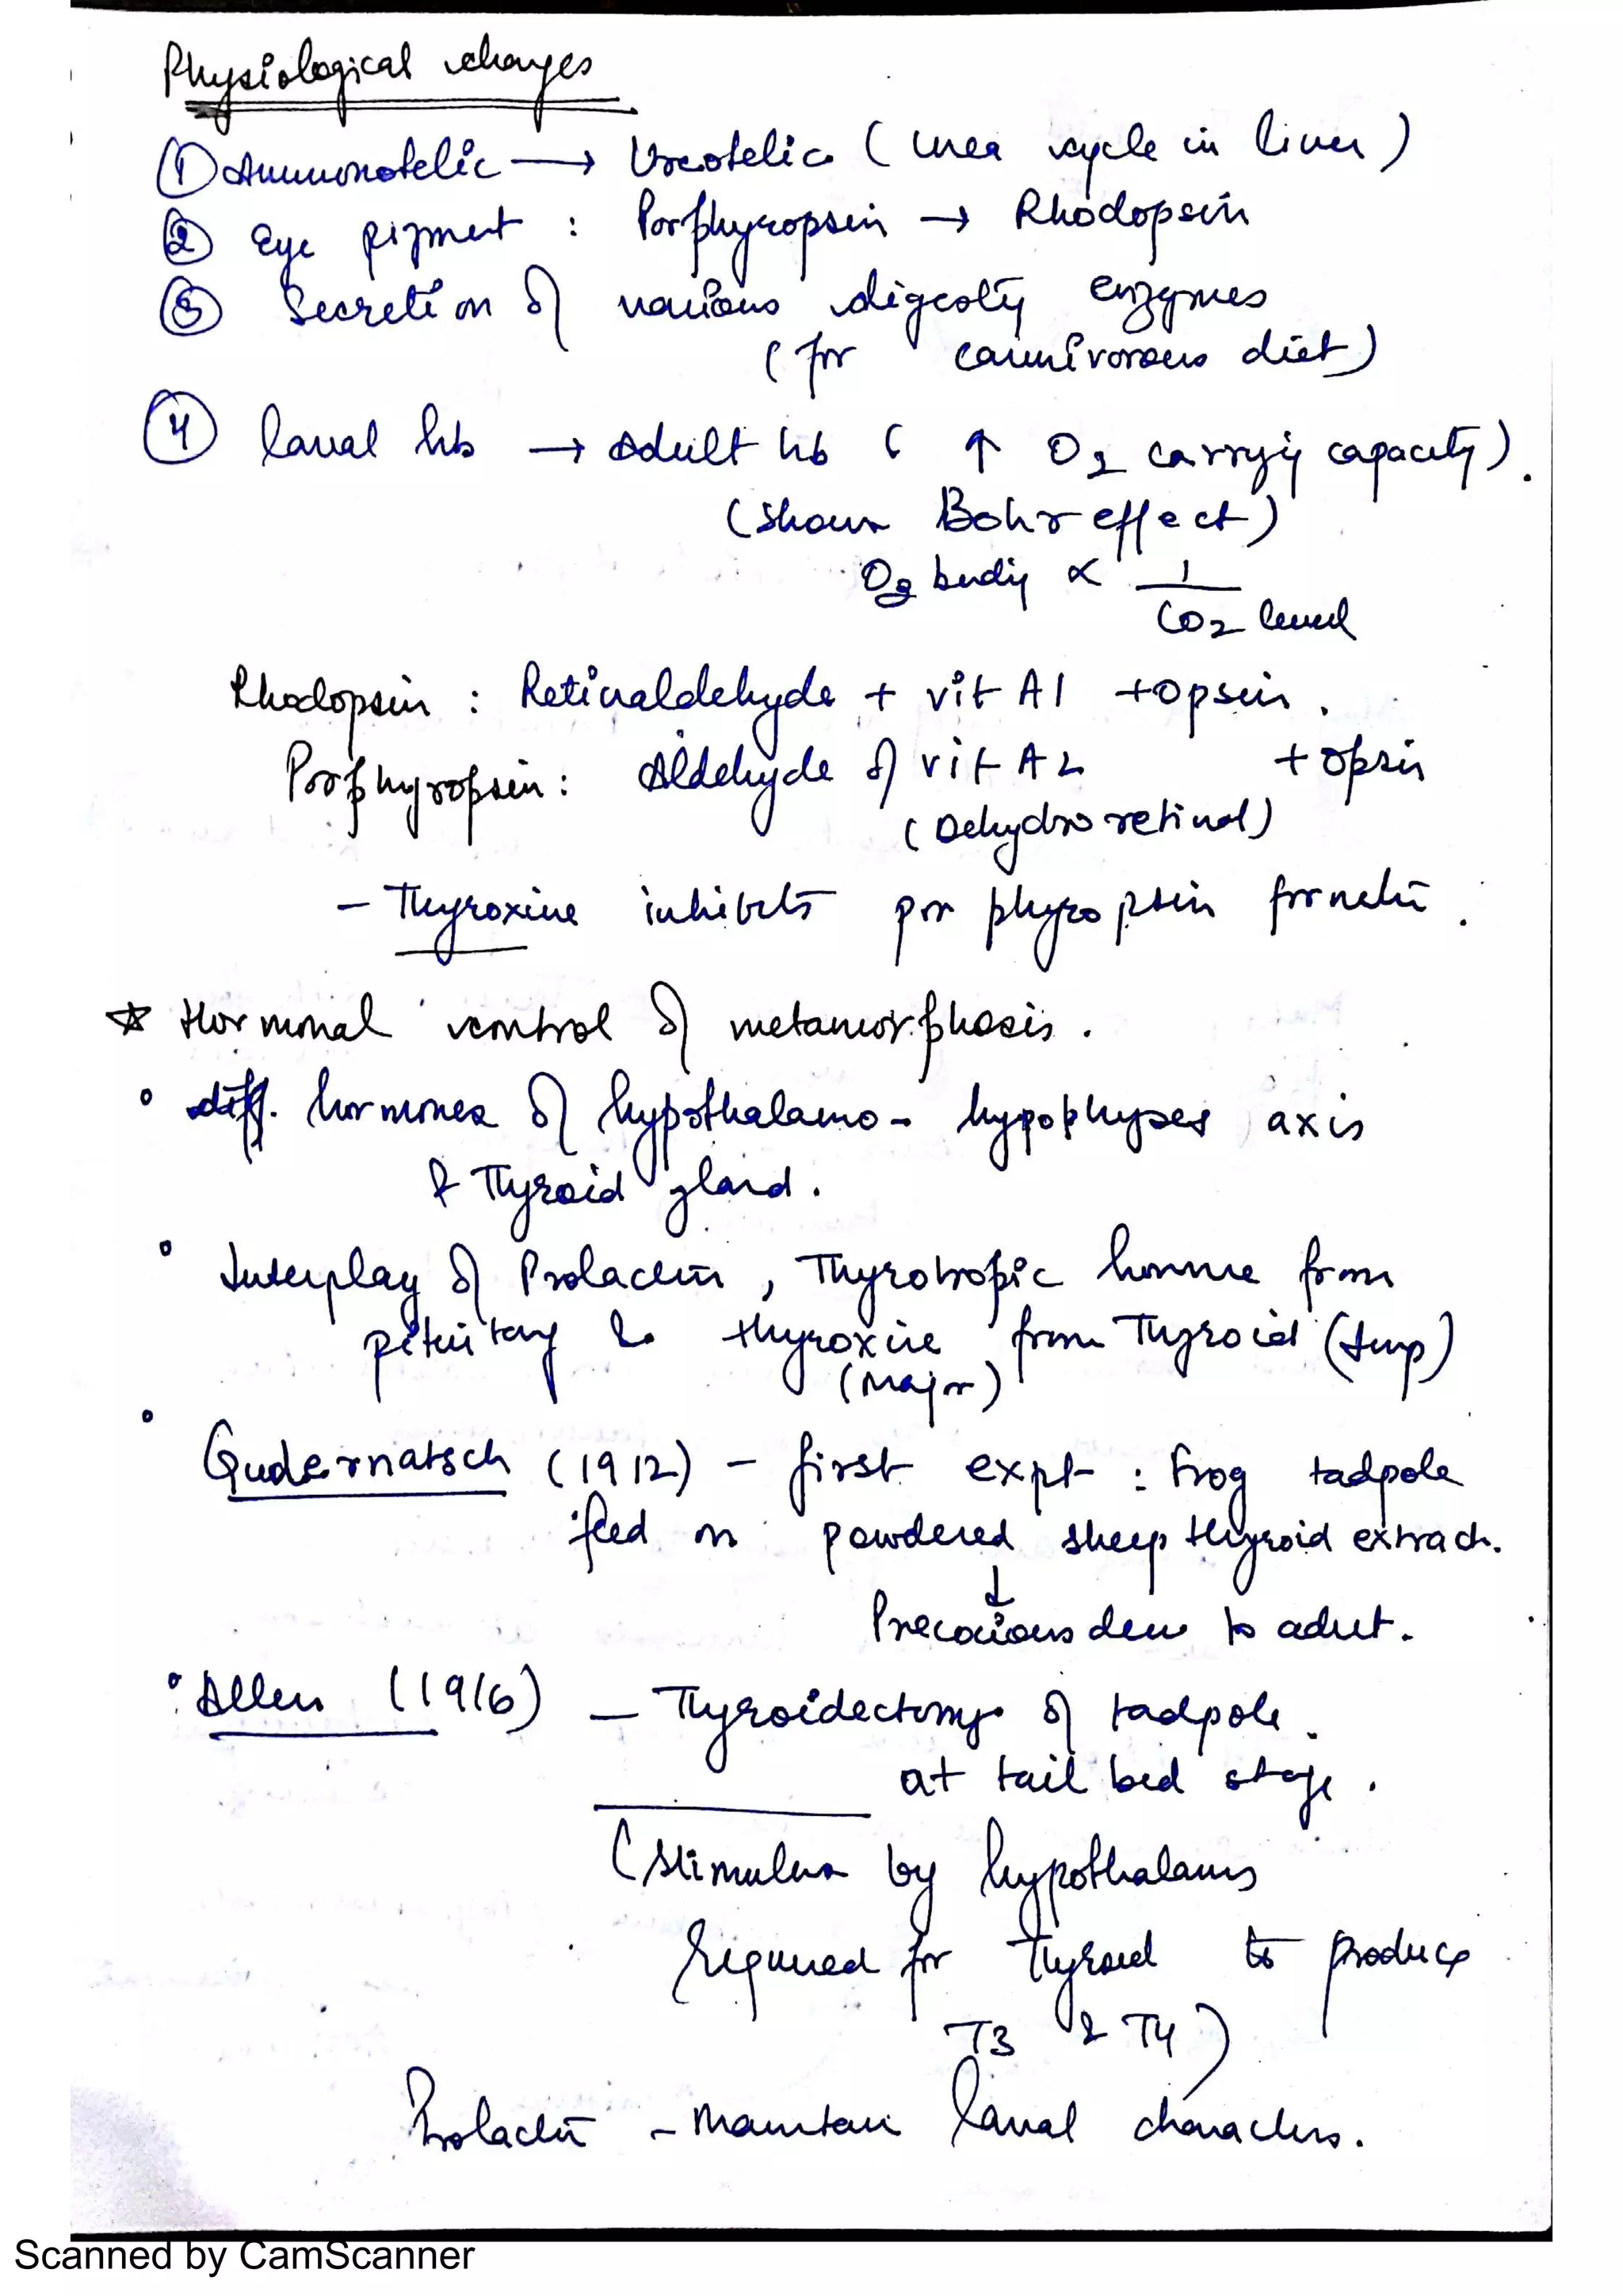 Physiological changes
① Ammonotelic → Ureotelic (Urea cycle in liver)
② Eye pigment : Porphyropsin → Rhodopsin
③ Secretion of various digesty enzymes
(for carnivorous diet)
④ larval hb → Adult hb ( ↑ O2 carryig capacity).
(shows Bohr effect)
O2 bindig ∝ 1
CO2 level
Rhodopsin : Retinaldehyde + vit A1 + opsin.
Porphyropsin : Aldehyde of vit A2 + opsin
(Dehydroretinal)
- Thyroxine inhibits porphyropsin formatn.
☆ Hormonal control of metamorphosis.
• diff. hormones of hypothalamo-hypophyses axis
& Thyroid gland.
• Interplay of Prolactin, Thyrotropic hormone from
pituitary & thyroxine from Thyroid (Imp)
(Major)
• Gudernatsch (1912) - first expt : Frog tadpole
feed on powdered sheep thyroid extract.
↓
Precocious dev to adult.
• Allen (1916) - Thyroidectomy of tadpole.
at tail bud stage.
(Stimulus by hypothalamus
required for thyroid to produce
T3 & T4)
Prolactin - Maintain larval characters.
Scanned by CamScanner